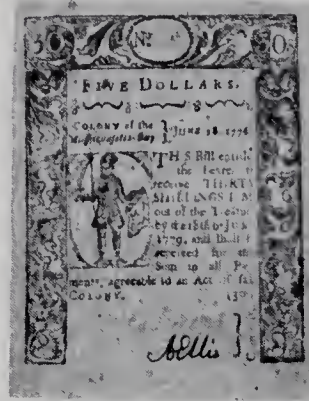 30 No. 30
FIVE DOLLARS.
COLONY of the
Massachusetts-Bay } JUNE 18, 1776
THIS Bill entitles
the Bearer to
receive THIRTY
SHILLINGS L M
out of the
by the 18th of June
1779, and shall be
received for
Sum in all Pay
ments, agreeable to an Act of said
COLONY.
AEllis